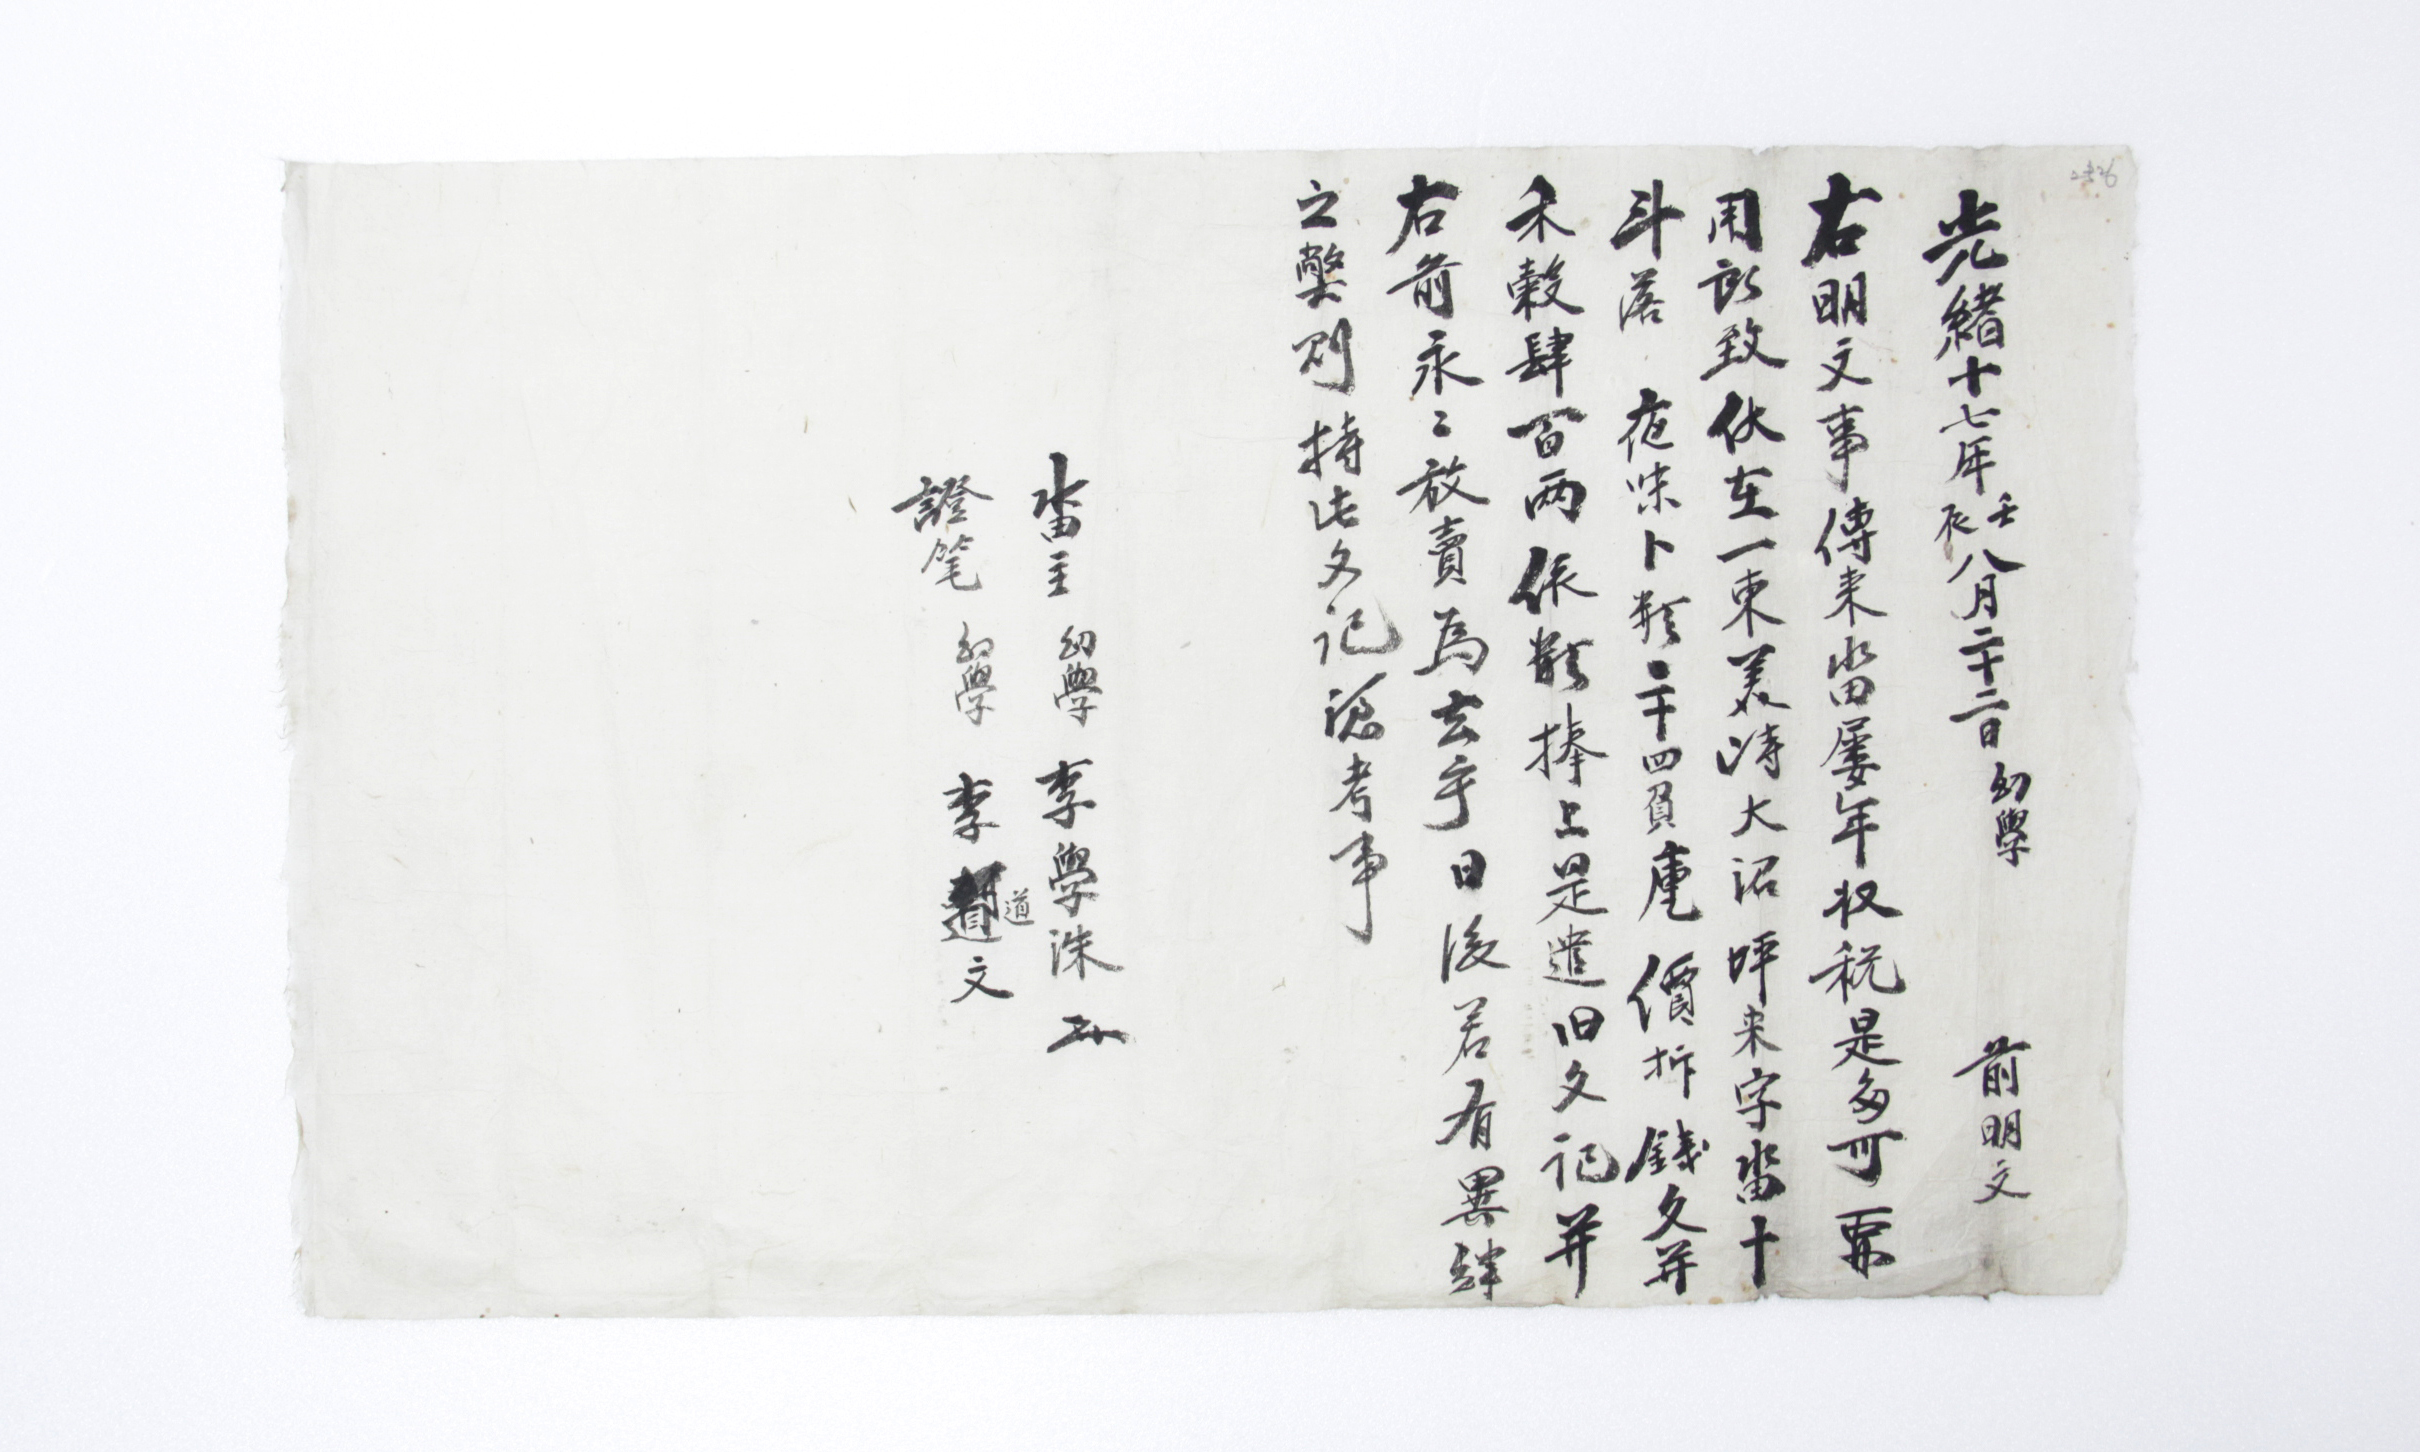 光緖十七年壬辰八月二十二日幼學 前明文
右明文事傳来畓屡年収税是多可要
用所致伏在一東美 大沼坪来字畓十
斗落 夜味卜數二十四負㐣價折錢文幷
禾穀肆百兩依數捧上是遣旧文記幷
右前永〻放賣爲去乎日後若有異
之弊則持此文記憑考事
畓主 幼學 李學洙
證笔 幼學 李道文
道